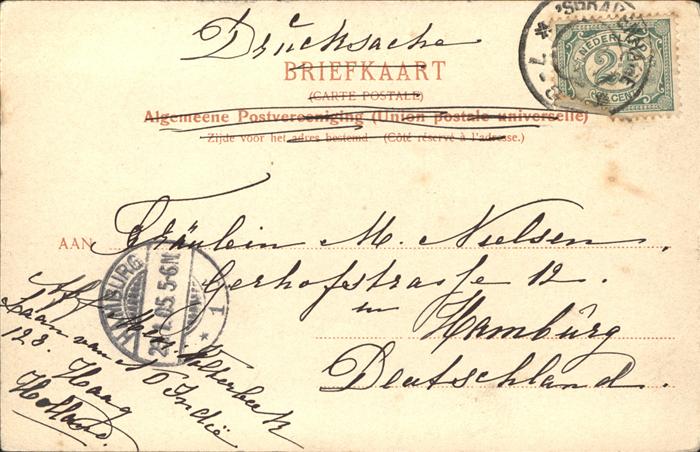 Drucksache
BRIEFKAART
(CARTE POSTALE)
Algemeene Postvereeniging (Union postale universelle)
Zijde voor het adres bestemd. (Côté réservé à l'adresse.)
NEDERLAND
2½
CENT
AAN Fräulein M. Nielsen,
Gerhofstrasse 12.
in
Hamburg
Deutschland.
HAMBURG
05. 5-6 N.
* 1
Laan van N O Indië
128.
Haag
Holland.